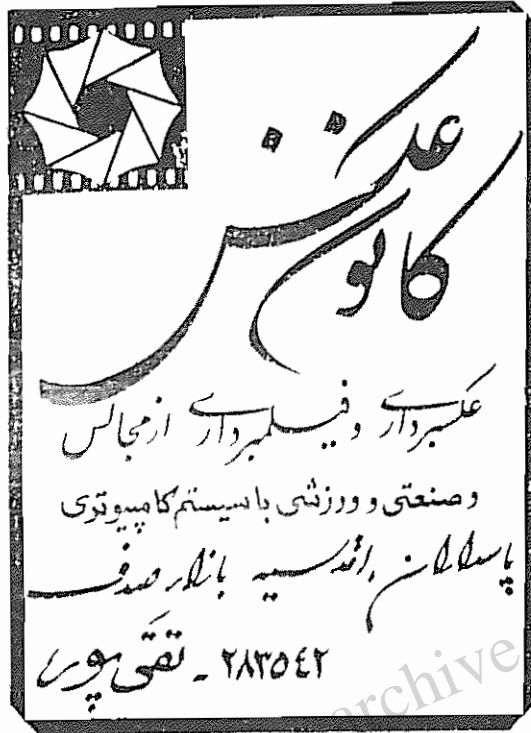 کانون عکس
عکسبرداری و فیلمبرداری از مجالس
و صنعتی و ورزشی با سیستم کامپیوتری
پاسداران، اقدسیه بازار صدف
۲۸۳۵۴۲ - تقی‌پور
archive